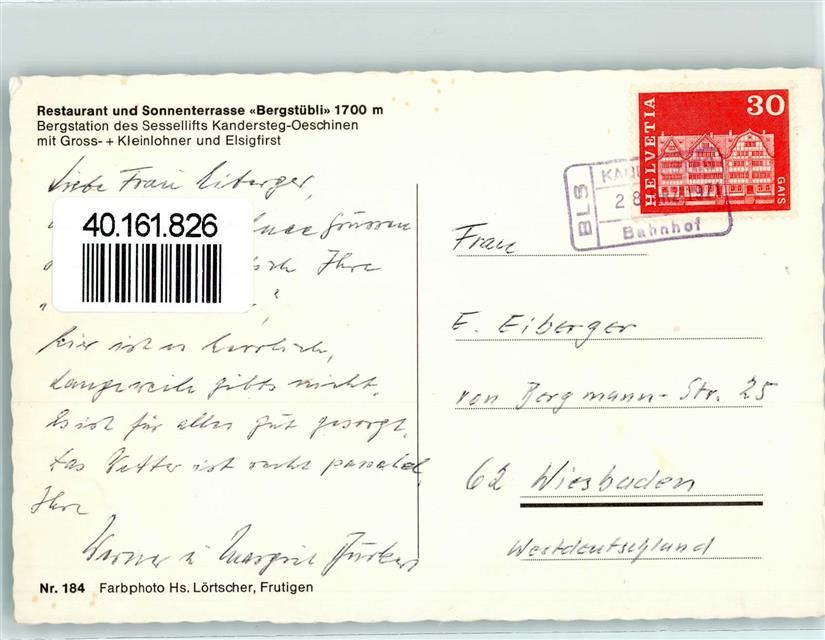 Restaurant und Sonnenterrasse «Bergstübli» 1700 m
Bergstation des Sessellifts Kandersteg-Oeschinen
mit Gross- + Kleinlohner und Elsigfirst
Liebe Frau Eiberger,
40.161.826
Grüssen
Ihre
hier ist es herrlich,
Langeweile gibts nicht.
Es ist für alles gut gesorgt.
Das Wetter ist recht passabel
Ihre
Werner u Margrit
Nr. 184 Farbphoto Hs. Lörtscher, Frutigen
HELVETIA
30
GAIS
BLS
28
Bahnhof
Frau
E. Eiberger
von Bergmann-Str. 25
62 Wiesbaden
Westdeutschland